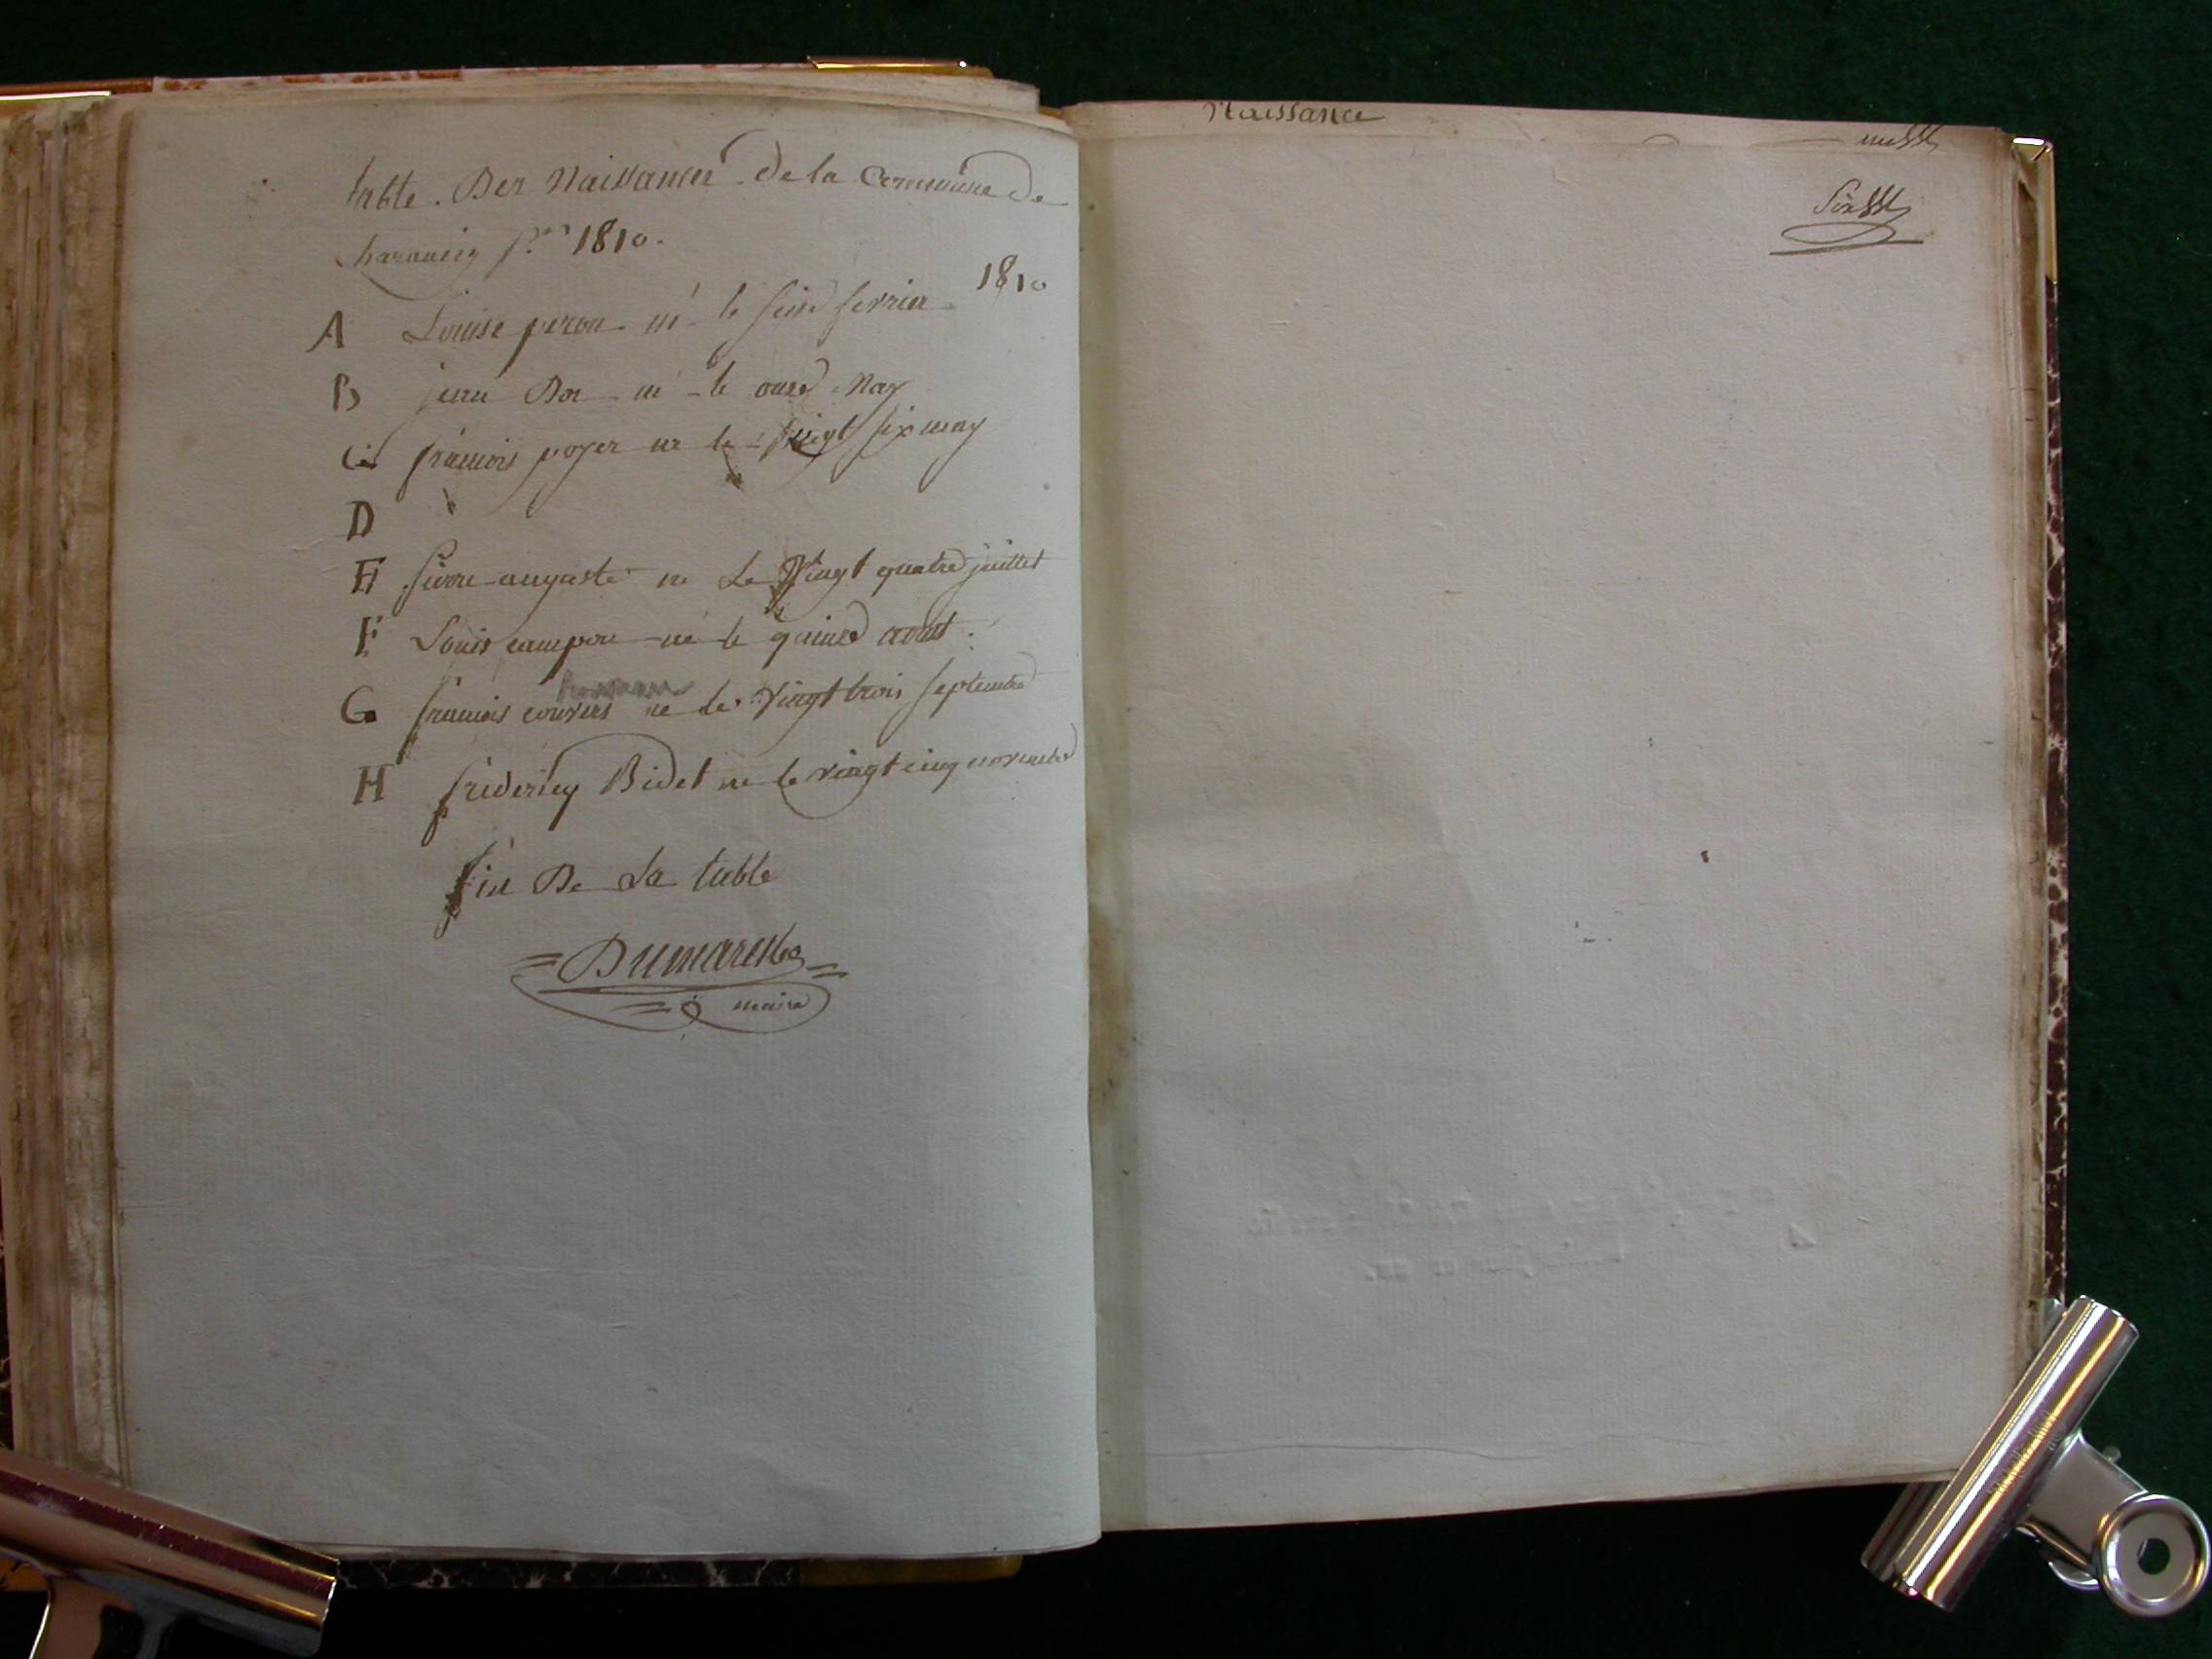 table. Des Naissances de la Commune de
charancy pr 1810.
1810
A Louise peron né le seise fevrier
B jean Bor né le onse May
C francois poyer ne le vingt six may
D
E pierre auguste ne Le Vingt quatre juillet
F Louis campon né le quinse aout.
G francois couvers ne le vingt trois septembre
H frederiey Bidet ne le vingt cinq novembre
fin De La table
Dumarest
maire
Naissance